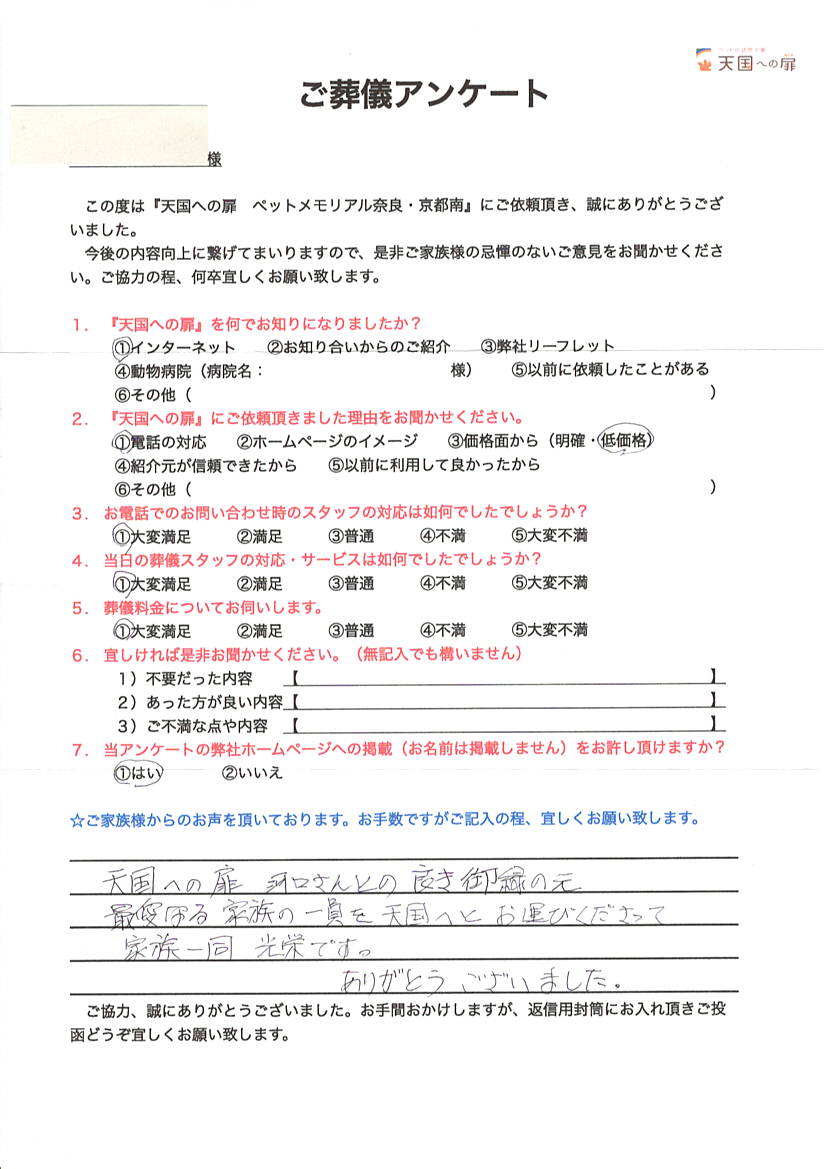 天国への扉
ご葬儀アンケート
様
この度は『天国への扉　ペットメモリアル奈良・京都南』にご依頼頂き、誠にありがとうござ
いました。
今後の内容向上に繋げてまいりますので、是非ご家族様の忌憚のないご意見をお聞かせくださ
い。ご協力の程、何卒宜しくお願い致します。
1．『天国への扉』を何でお知りになりましたか？
①インターネット　②お知り合いからのご紹介　③弊社リーフレット
④動物病院（病院名：　様）　⑤以前に依頼したことがある
⑥その他（　）
2．『天国への扉』にご依頼頂きました理由をお聞かせください。
①電話の対応　②ホームページのイメージ　③価格面から（明確・低価格）
④紹介元が信頼できたから　⑤以前に利用して良かったから
⑥その他（　）
3．お電話でのお問い合わせ時のスタッフの対応は如何でしたでしょうか？
①大変満足　②満足　③普通　④不満　⑤大変不満
4．当日の葬儀スタッフの対応・サービスは如何でしたでしょうか？
①大変満足　②満足　③普通　④不満　⑤大変不満
5．葬儀料金についてお伺いします。
①大変満足　②満足　③普通　④不満　⑤大変不満
6．宜しければ是非お聞かせください。（無記入でも構いません）
1）不要だった内容　【　】
2）あった方が良い内容【　】
3）ご不満な点や内容　【　】
7．当アンケートの弊社ホームページへの掲載（お名前は掲載しません）をお許し頂けますか？
①はい　②いいえ
☆ご家族様からのお声を頂いております。お手数ですがご記入の程、宜しくお願い致します。
天国への扉　河口さんとの 良き御縁の元
最愛なる 家族の一員を 天国へと お運びくださって
家族一同　光栄です。
ありがとう ございました。
ご協力、誠にありがとうございました。お手間おかけしますが、返信用封筒にお入れ頂きご投
函どうぞ宜しくお願い致します。